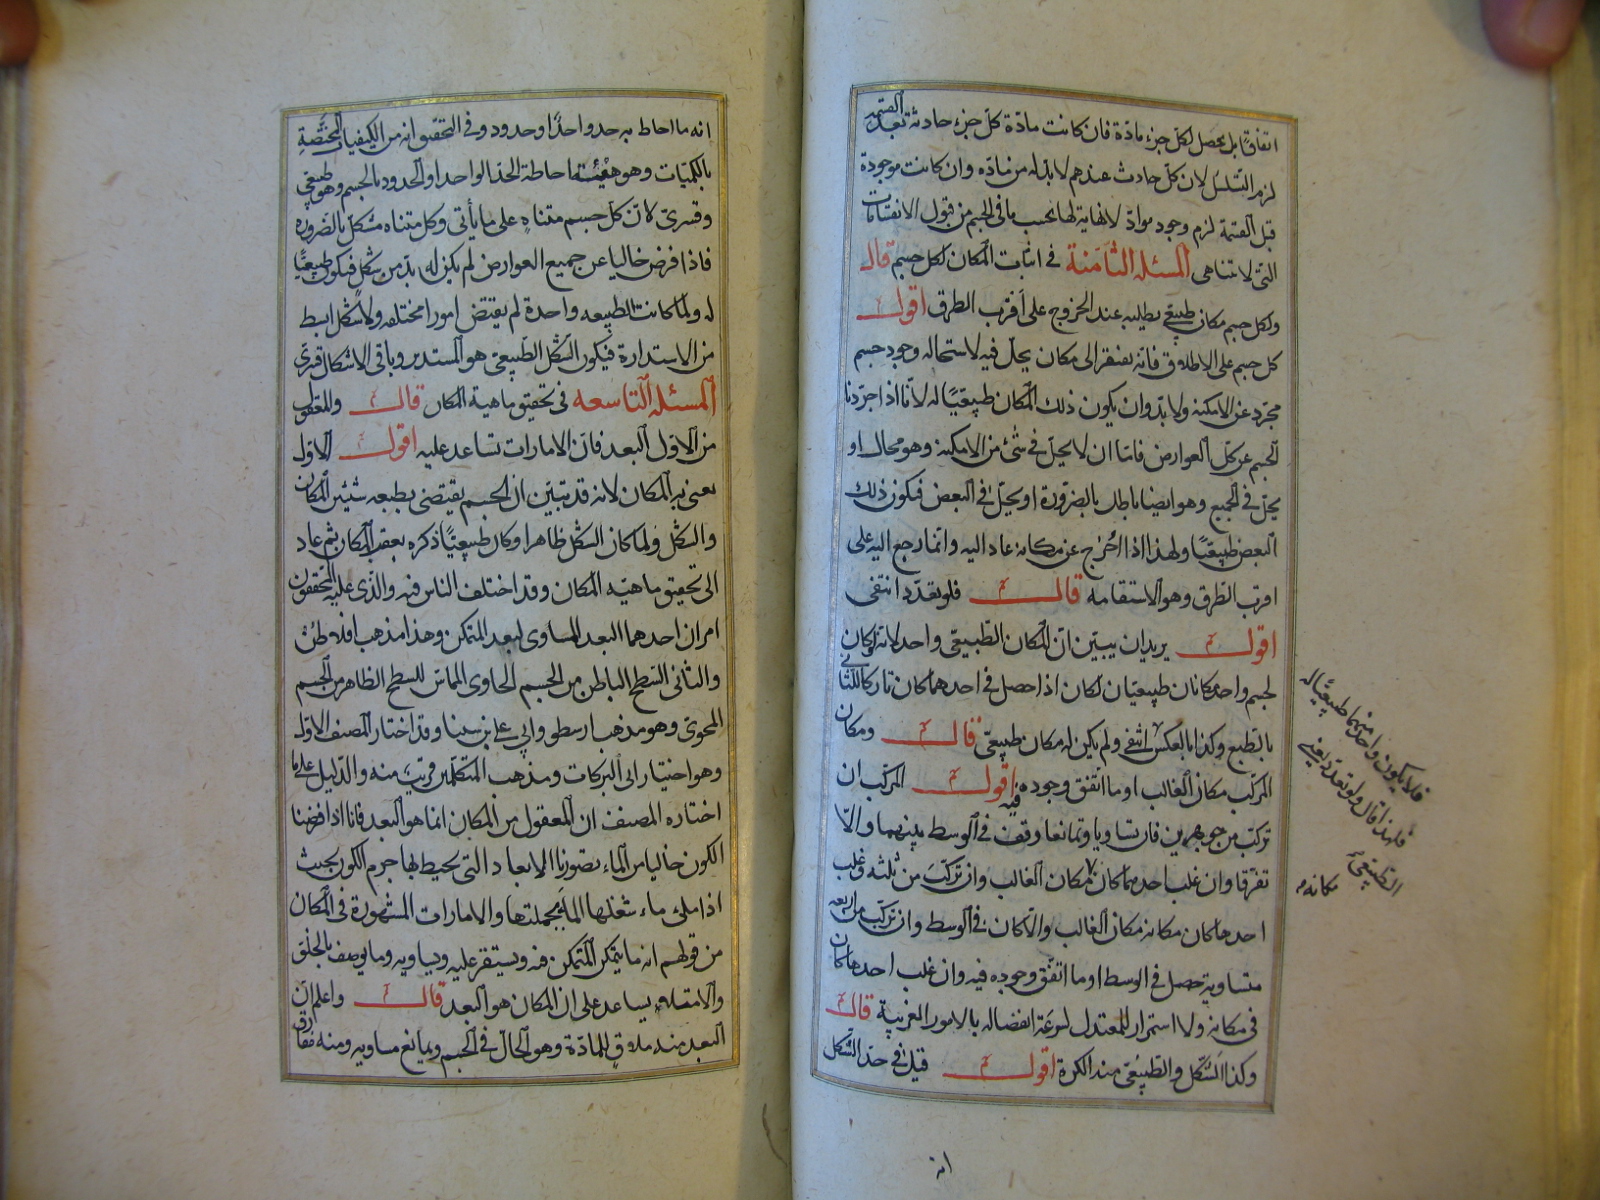 اتفاقا بل يحصل لكل جزء مادة فان كانت مادة كل جزء حادثة بعد القسمة
لزم التسلسل لان كل حادث عندهم لابد له من مادة وان كانت موجودة
قبل القسمة لزم وجود مواد لا نهاية لها بحسب ما في الجسم من قبول الانقسامات
التي لا تتناهى المسئلة الثامنة في اثبات المكان لكل جسم قال
ولكل جسم مكان طبيعي يطلبه عند الخروج على اقرب الطرق اقول
كل جسم على الاطلاق فانه يفتقر الى مكان يحل فيه لاستحالة وجود جسم
مجرد عن الامكنة ولابد وان يكون ذلك المكان طبيعيا له لانا اذا جردنا
الجسم عن كل العوارض فاما ان لا يحل في شئ من الامكنة وهو محال او
يحل في الجميع وهو ايضا باطل بالضرورة او يحل في البعض فيكون ذلك
البعض طبيعيا ولهذا اذا اخرج عن مكانه عاد اليه وانما رجع اليه على
اقرب الطرق وهو الاستقامة قال فلو تعدد انتفى
اقول يريد ان يبين ان المكان الطبيعي واحد لانه لو كان
لجسم واحد مكانان طبيعيان لكان اذا حصل في احدهما كان تاركا للثاني
بالطبع وكذا بالعكس ولم يكن له مكان طبيعي قال ومكان
المركب مكان الغالب او ما اتفق وجوده فيه اقول المركب ان
تركب من جوهرين فان تساويا وتمانعا وقف في الوسط بينهما والا
تفرقا وان غلب احدهما كان مكانه مكان الغالب وان تركب من ثلثة وغلب
احدها كان مكانه مكان الغالب والا كان في الوسط وان تركب من اربعة
متساوية حصل في الوسط او ما اتفق وجوده فيه وان غلب احدها كان
في مكانه ولا استمرار للمعتدل لسرعة انفصاله بالامور الغريبة قال
وكذا الشكل والطبيعي منه الكرة اقول قيل في حد الشكل
فلا يكون واحد منهما طبيعيا له
فلهذا قال ولو تعدد يعني
الطبيعي
مكانه
انه
انه ما احاط به حد واحد او حدود وفي التحقيق انه من الكيفيات المختصة
بالكميات وهو هيئة احاطة الحد الواحد او الحدود بالجسم وهو طبيعي
وقسري لان كل جسم متناه على ما يأتي وكل متناه مشكل بالضرورة
فاذا فرض خاليا عن جميع العوارض لم يكن له بد من شكل فيكون طبيعيا
له ولما كانت الطبيعة واحدة لم يقتض امورا مختلفة ولا شكل ابسط
من الاستدارة فيكون الشكل الطبيعي هو المستدير وباقي الاشكال قسري
المسئلة التاسعة في تحقيق ماهية المكان قال والمعقول
من الاول البعد فان الامارات تساعد عليه اقول الاول
يعني به المكان لانه قد تبين ان الجسم يقتضي بطبعه شيئين المكان
والشكل ولما كان الشكل ظاهرا وكان طبيعيا ذكره بعقب المكان ثم عاد
الى تحقيق ماهية المكان وقد اختلف الناس فيه والذي عليه المحققون
امران احدهما البعد المساوي لبعد المتمكن وهذا مذهب افلاطن
والثاني السطح الباطن من الجسم الحاوي المماس للسطح الظاهر من الجسم
المحوي وهو مذهب ارسطو وابي علي بن سينا وقد اختار المصنف الاول
وهو اختيار ابي البركات ومذهب المتكلمين قريب منه والدليل على ما
اختاره المصنف ان المعقول من المكان انما هو البعد فانا اذا فرضنا
الكون خاليا من الماء تصورنا الابعاد التي يحيط بها جرم الكوز بحيث
اذا ملئ ماء شغلها الماء بجملتها والامارات المشهورة في المكان
من قولهم انه ما يتمكن المتمكن فيه ويستقر عليه ويساويه وما يوصف بالخلو
والامتلاء يساعد على ان المكان هو البعد قال واعلم ان
البعد منه ملاق للمادة وهو الحال في الجسم ويمانع مساويه ومنه مفارق